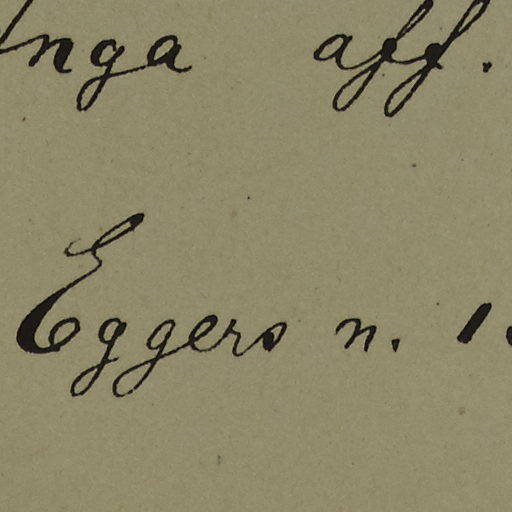 nga aff.
Eggers n. 1